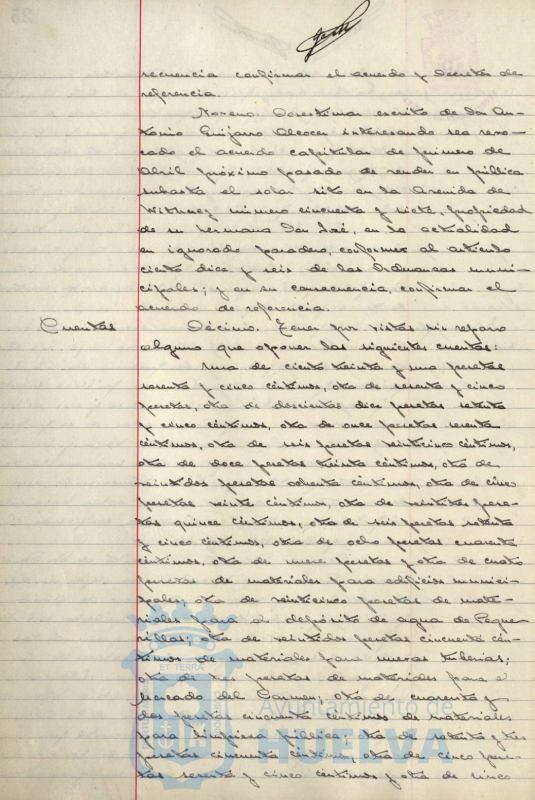 secuencia confirmar el acuerdo y Decretos de
referencia.
Noveno. Desestimar escrito de don An-
tonio Guijarro Alcocer interesando sea revo-
cado el acuerdo capitular de primero de
Abril próximo pasado de vender en pública
subasta el solar sito en la Avenida de
número cincuenta y siete, propiedad
de su hermano Don José, en la actualidad
en ignorado paradero, conforme al artículo
ciento diez y seis de las Ordenanzas muni-
cipales; y en su consecuencia, confirmar el
acuerdo de referencia.
Cuentas
Décimo. Tener por vistas sin reparo
alguno que oponer las siguientes cuentas:
Una de ciento treinta y una pesetas
sesenta y cinco céntimos, otra de sesenta y cinco
pesetas, otra de doscientas diez pesetas setenta
y cinco céntimos, otra de once pesetas sesenta
céntimos, otra de seis pesetas veinticinco céntimos,
otra de doce pesetas treinta céntimos, otra de
veintidos pesetas ochenta céntimos, otra de cinco
pesetas veinte céntimos, otra de pese-
tas quince céntimos, otra de seis pesetas setenta
y cinco céntimos, otra de ocho pesetas cuarenta
céntimos, otra de nueve pesetas y otra de cuatro
pesetas de materiales para edificios munici-
pales; otra de veinticinco pesetas de mate-
riales para el depósito de agua de Pegue-
rillas; otra de veintidos pesetas cincuenta cén-
timos de materiales para nuevas tuberías;
otra de pesetas de materiales para el
Mercado del Carmen; otra de cuarenta y
dos pesetas cincuenta céntimos de materiales
para limpieza pública; otra de setenta y tres
pesetas cincuenta céntimos, otra de cinco pese-
tas sesenta y cinco céntimos y otra de cinco
ET TERRA
Ayuntamiento de
HUELVA